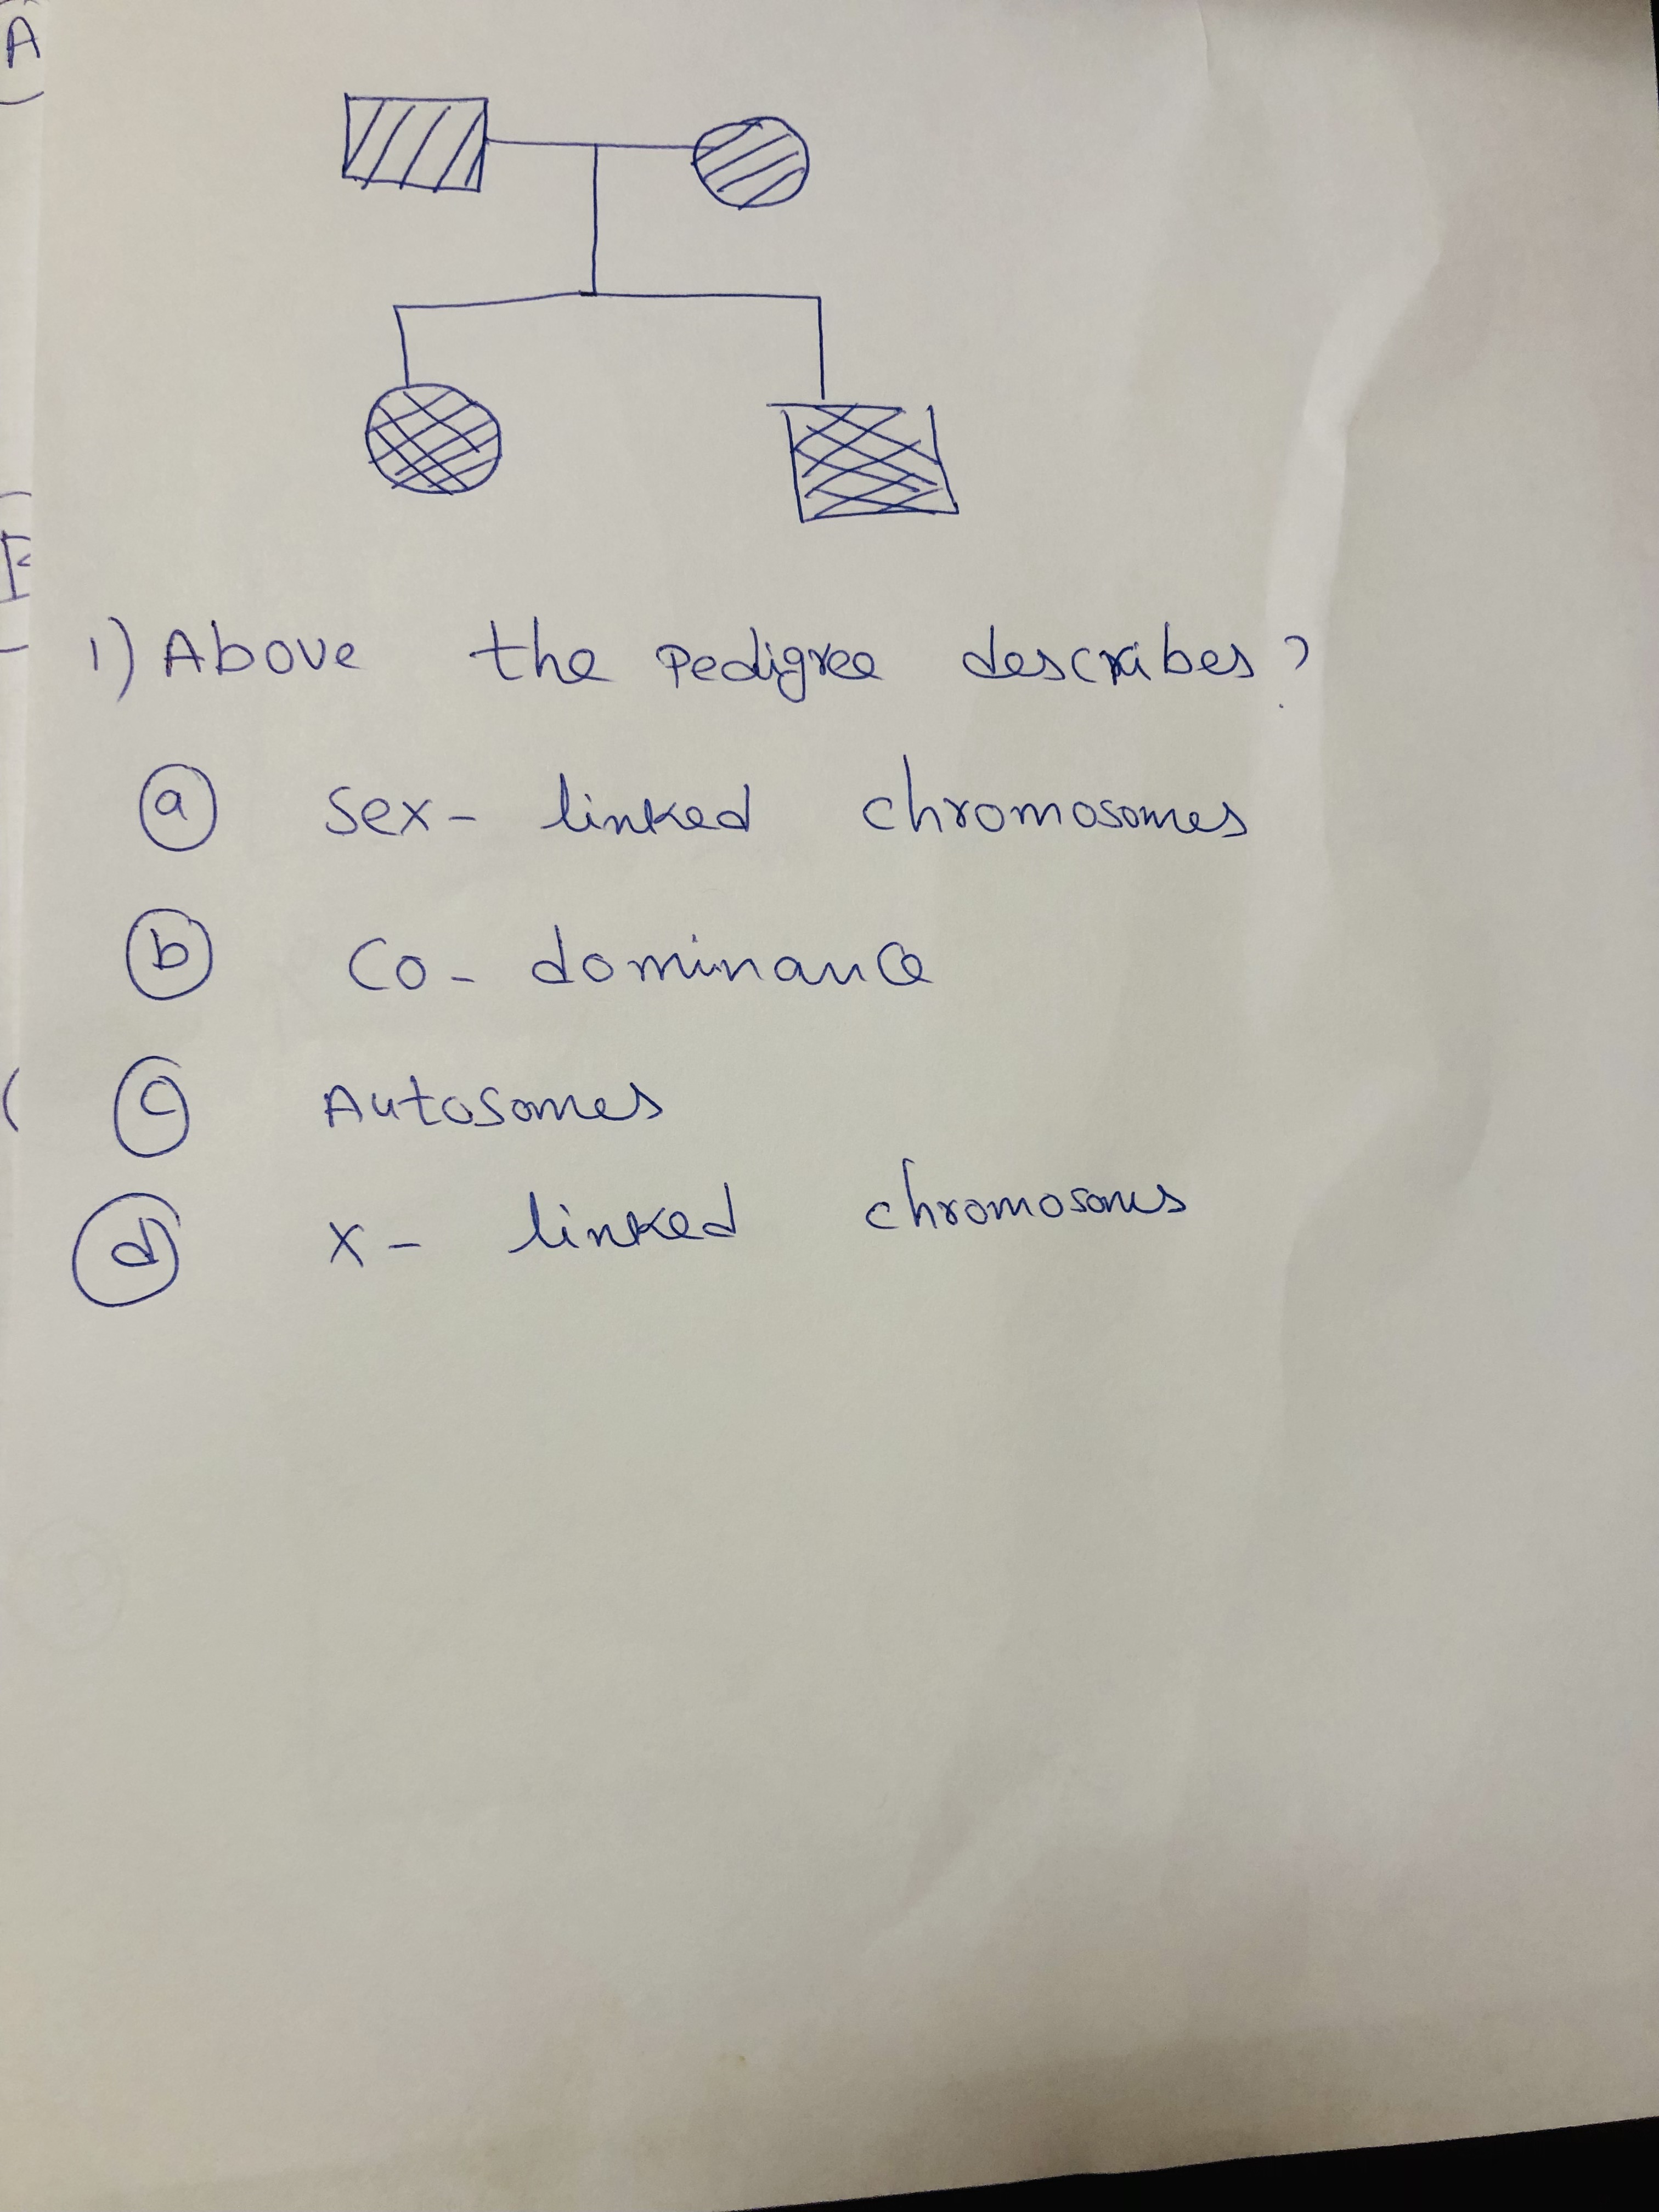 A
F
1) Above the pedigree describes?
a sex- linked chromosomes
b co- dominance
c Autosomes
d x- linked chromosomes